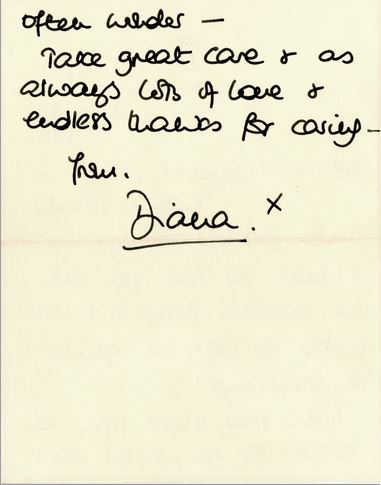 often wonder –
Take great care & as
always lots of love &
endless thanks for caring –
from.
Diana. x